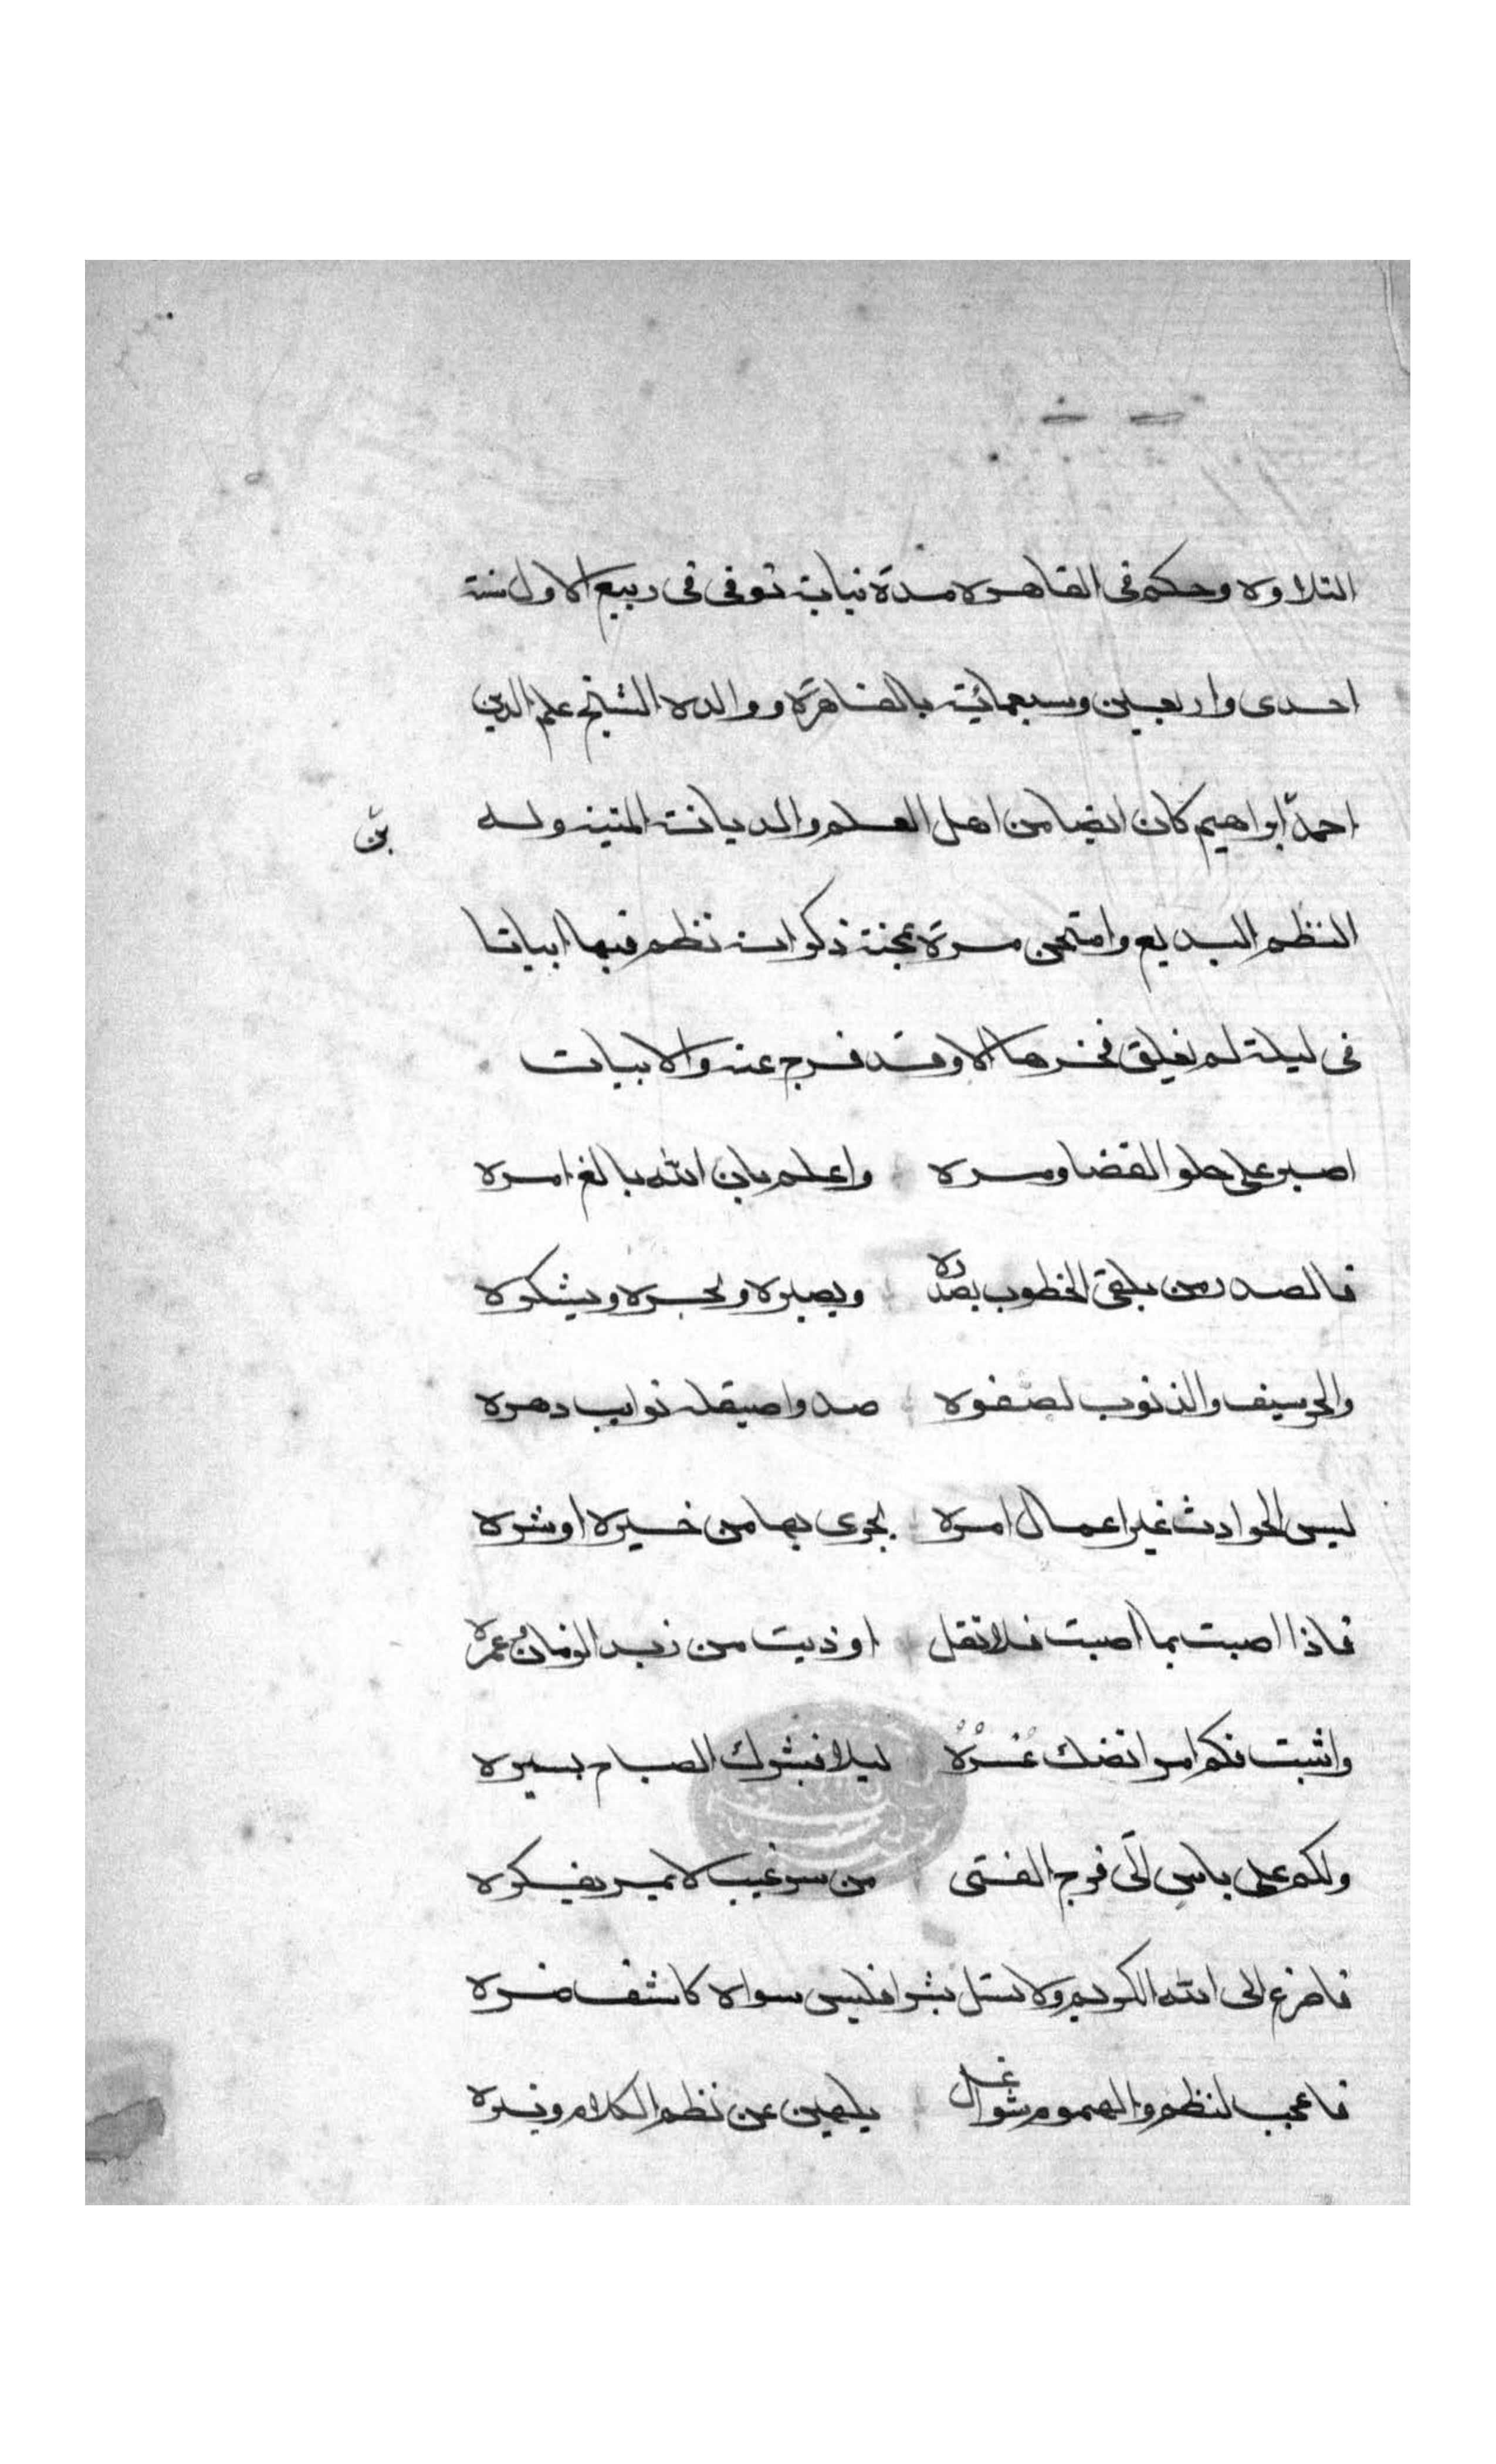 التلاوه وحكم فى القاهره مدة نيابة توفى فى ربيع الاول سنة
احدى واربعين وسبعمائة بالقاهرة ووالده الشيخ علم الدين
احمد ابراهيم كان ايضا من اهل العلم والديانة المتينة وله
بن
النظم البديع وامتحن مرة بمحنة ذكر انه نظم فيها ابياتا
فى ليلة لم يفلق فجرها الا وقد فرج عنه والابيات
اصبر على حلو القضا ومره واعلم بان الله بالغ امره
فالصدر من يلقى الخطوب بصدره وبصبره وبحمده وبشكره
والحر سيف والذنوب لصفوه صدا وصيقله نوايب دهره
ليس الحوادث غير اعمال امره يجزى بها من خيره او شره
فاذا اصبت بما اصبت فلا تقل اوذيت من زيد الزمان وعمره
واثبت فكم امر امضك عُسْرُهُ ليلا فبشرك الصباح بيسره
ولكم على ياس اتى فرج الفتى من سر غيب لا يمر بفكره
فاضرع الى الله الكريم ولا تسل بشرا فليس سواه كاشف ضره
فاعجب لنظم والهموم شواغل يلهين عن نظم الكلام ونثره